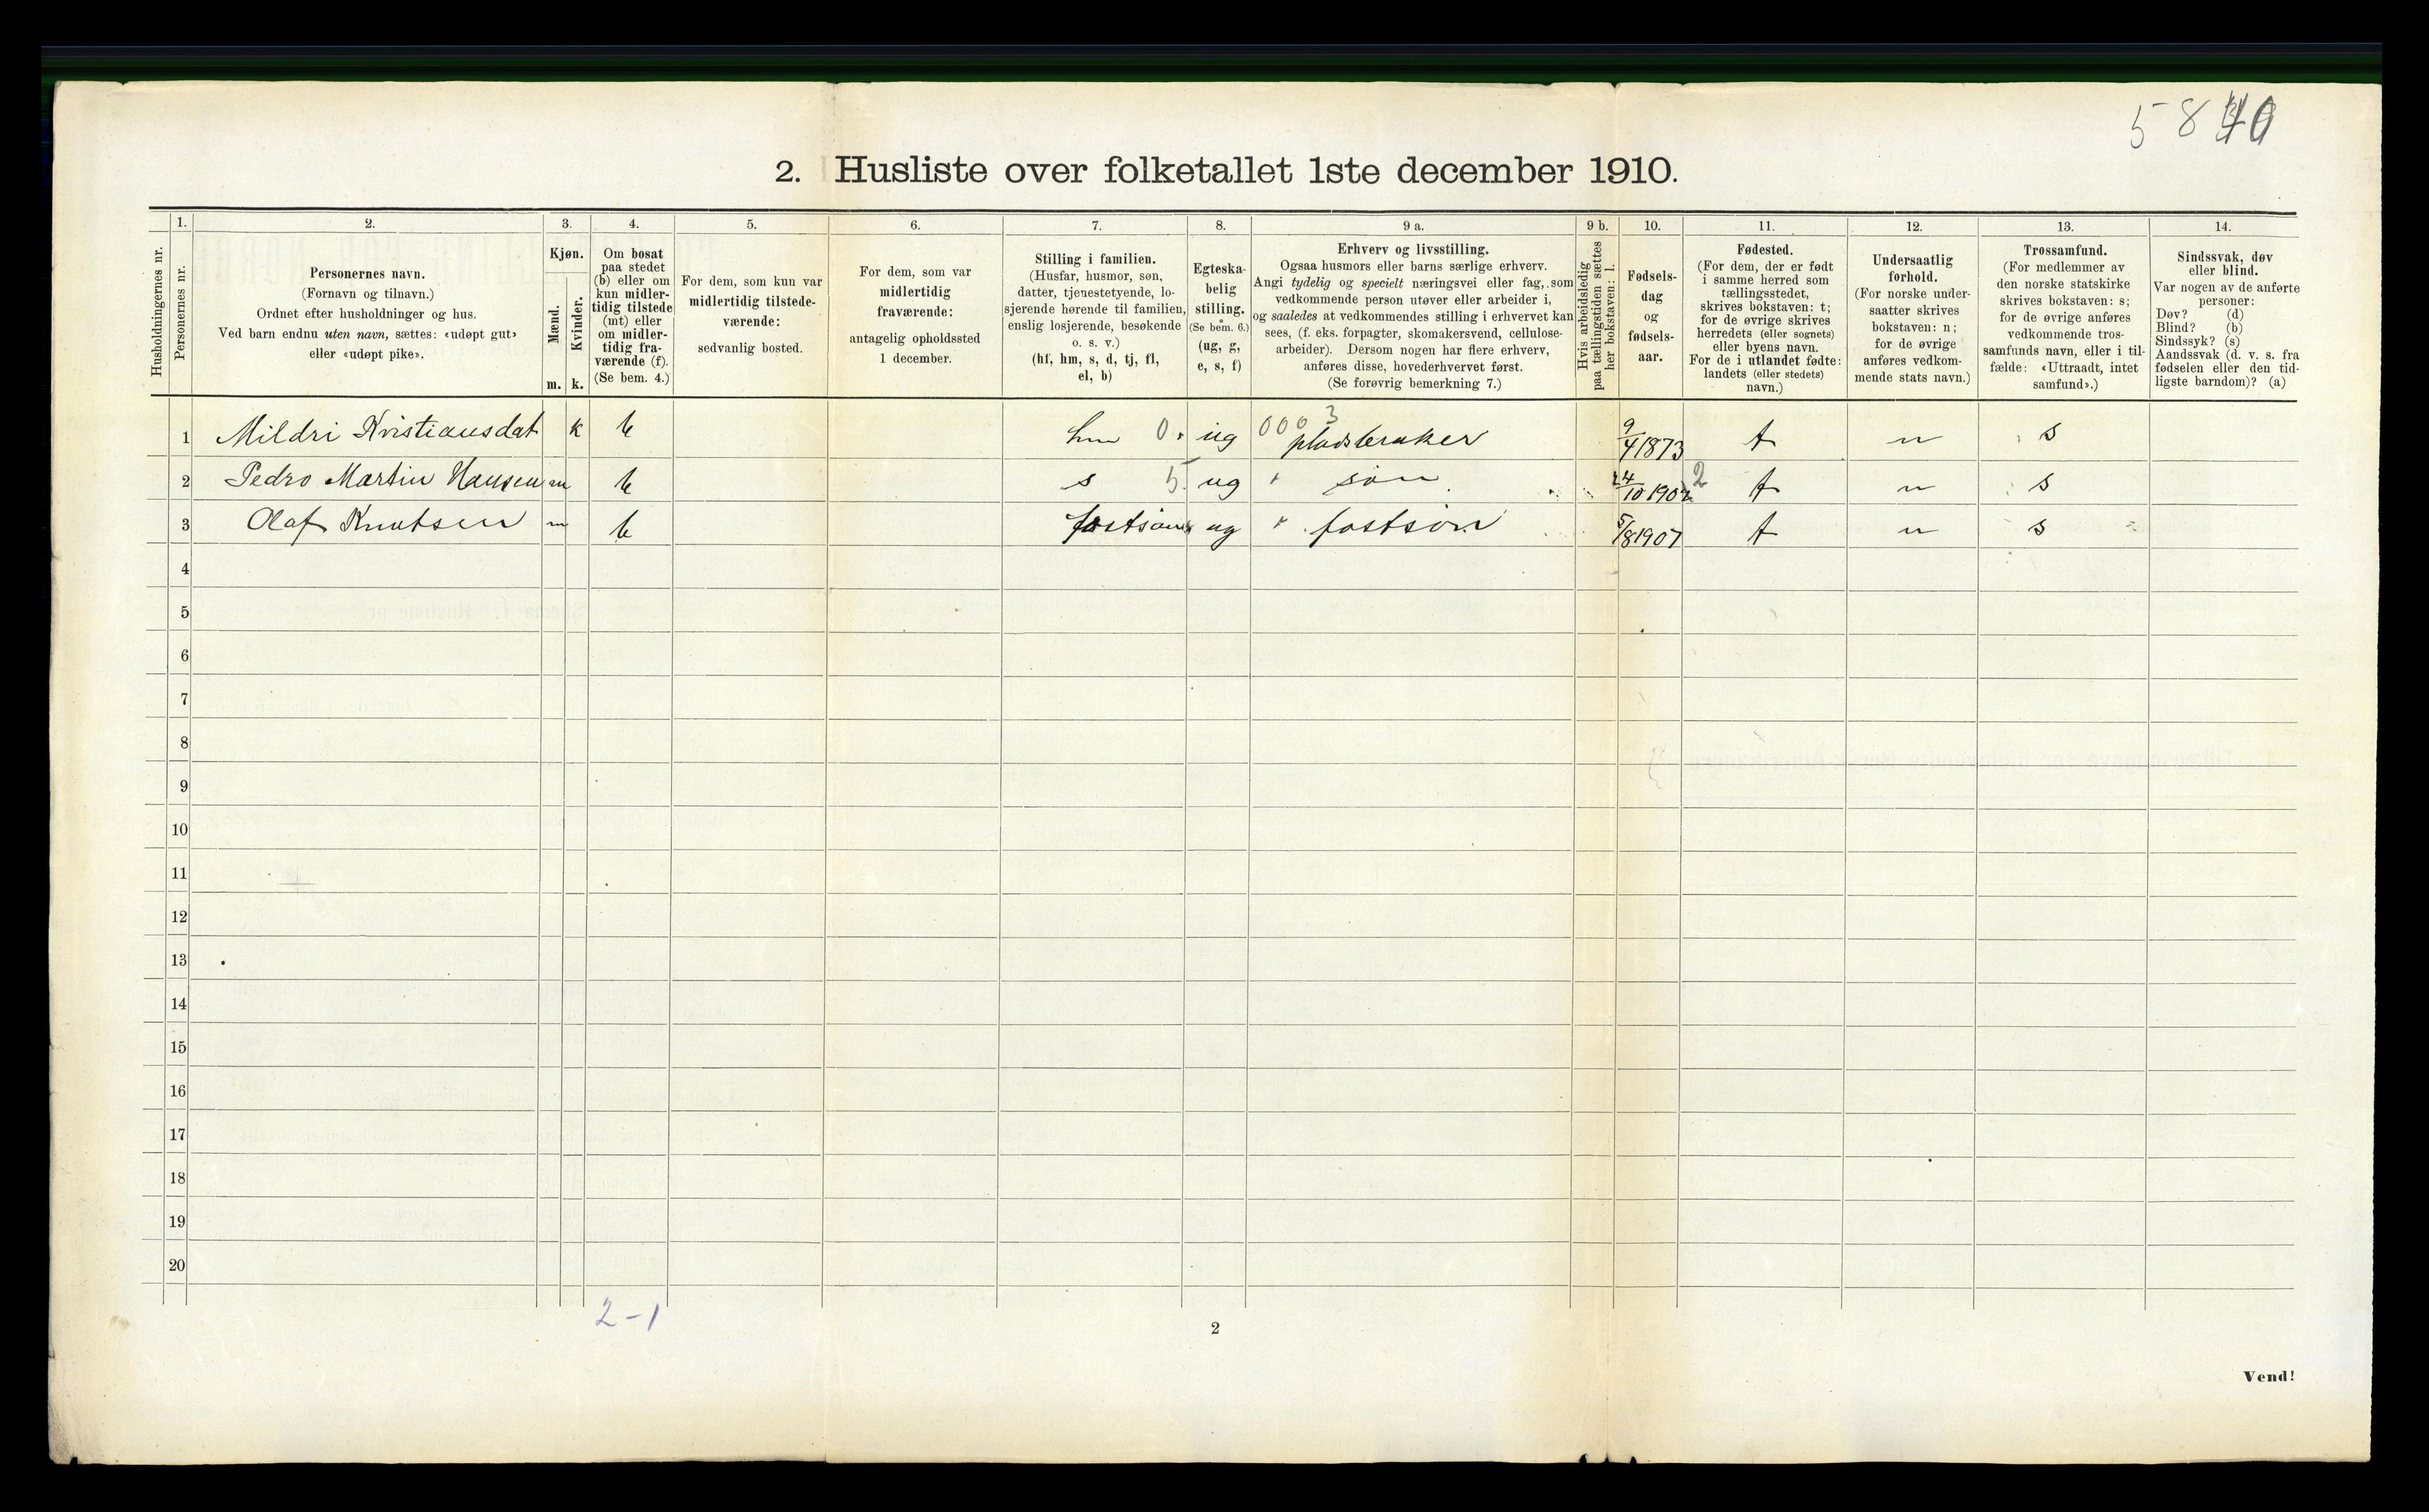 5840
2. Husliste over folketallet 1ste december 1910.
Husholdningernes nr.
1. Personernes nr.
2. Personernes navn.
(Fornavn og tilnavn.)
Ordnet efter husholdninger og hus.
Ved barn endnu uten navn, sættes: «udøpt gut»
eller «udøpt pike».
3. Kjøn.
Mænd. m.
Kvinder. k.
4. Om bosat
paa stedet
(b) eller om
kun midler-
tidig tilstede
(mt) eller
om midler-
tidig fra-
værende (f).
(Se bem. 4.)
5. For dem, som kun var
midlertidig tilstede-
værende:
sedvanlig bosted.
6. For dem, som var
midlertidig
fraværende:
antagelig opholdssted
1 december.
7. Stilling i familien.
(Husfar, husmor, søn,
datter, tjenestetyende, lo-
sjerende hørende til familien,
enslig losjerende, besøkende
o. s. v.)
(hf, hm, s, d, tj, fl,
el, b)
8. Egteska-
belig
stilling.
(Se bem. 6.)
(ug, g,
e, s, f)
9 a. Erhverv og livsstilling.
Ogsaa husmors eller barns særlige erhverv.
Angi tydelig og specielt næringsvei eller fag, som
vedkommende person utøver eller arbeider i,
og saaledes at vedkommendes stilling i erhvervet kan
sees, (f. eks. forpagter, skomakersvend, cellulose-
arbeider). Dersom nogen har flere erhverv,
anføres disse, hovederhvervet først.
(Se forøvrig bemerkning 7.)
9 b. Hvis arbeidsledig
paa tællingstiden sættes
her bokstaven: l.
10. Fødsels-
dag
og
fødsels-
aar.
11. Fødested.
(For dem, der er født
i samme herred som
tællingsstedet,
skrives bokstaven: t;
for de øvrige skrives
herredets (eller sognets)
eller byens navn.
For de i utlandet fødte:
landets (eller stedets)
navn.)
12. Undersaatlig
forhold.
(For norske under-
saatter skrives
bokstaven: n;
for de øvrige
anføres vedkom-
mende stats navn.)
13. Trossamfund.
(For medlemmer av
den norske statskirke
skrives bokstaven: s;
for de øvrige anføres
vedkommende tros-
samfunds navn, eller i til-
fælde: «Uttraadt, intet
samfund».)
14. Sindssvak, døv
eller blind.
Var nogen av de anførte
personer:
Døv? (d)
Blind? (b)
Sindssyk? (s)
Aandssvak (d. v. s. fra
fødselen eller den tid-
ligste barndom)? (a)
1 Mildri Kristiansdat k b hm 0. ug 000 3 pladsbruker 9/4 1873 t n s
2 Pedro Martin Hansen m b s 5. ug " søn 24/10 1902 2 t n s
3 Olaf Knutsen m b fostsøn ug " fostsøn 5/8 1907 t n s
4
5
6
7
8
9
10
11
12
13
14
15
16
17
18
19
20
2-1
2
Vend!